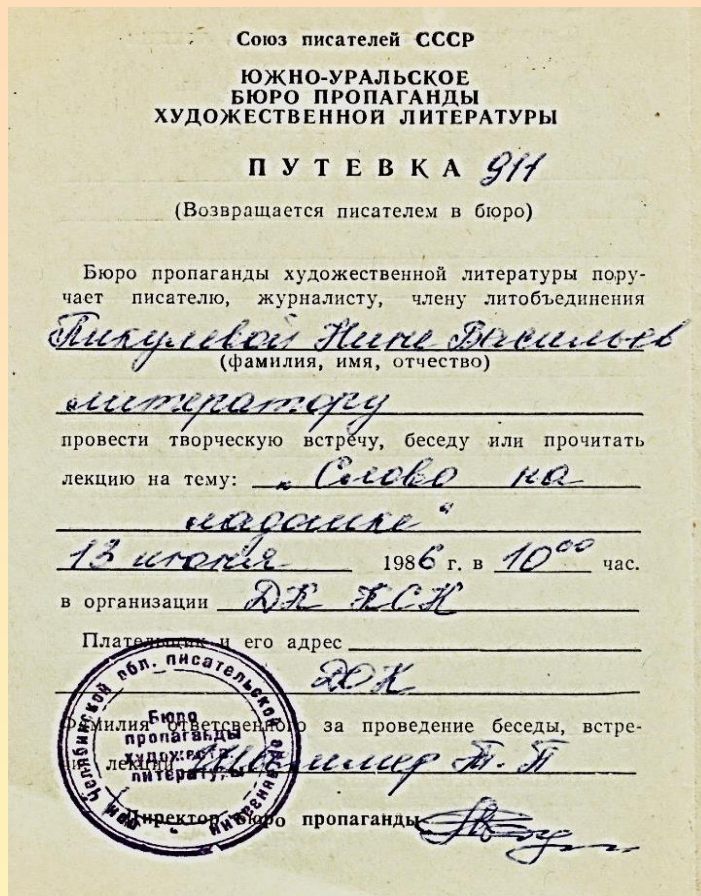 Союз писателей СССР
ЮЖНО-УРАЛЬСКОЕ
БЮРО ПРОПАГАНДЫ
ХУДОЖЕСТВЕННОЙ ЛИТЕРАТУРЫ
ПУТЕВКА 911
(Возвращается писателем в бюро)
Бюро пропаганды художественной литературы пору-
чает писателю, журналисту, члену литобъединения
Пикулевой Нине Васильев
(фамилия, имя, отчество)
литератору
провести творческую встречу, беседу или прочитать
лекцию на тему: „Слово на
ладошке“
13 июня 1986 г. в 10⁰⁰ час.
в организации ДК
Плательщик и его адрес
ДОК
Фамилия ответсвенного за проведение беседы, встре-
чи, лекции Т. П
Директор бюро пропаганды
при Челябинской обл. писательской организации
Бюро
пропаганды
художеств.
литературы